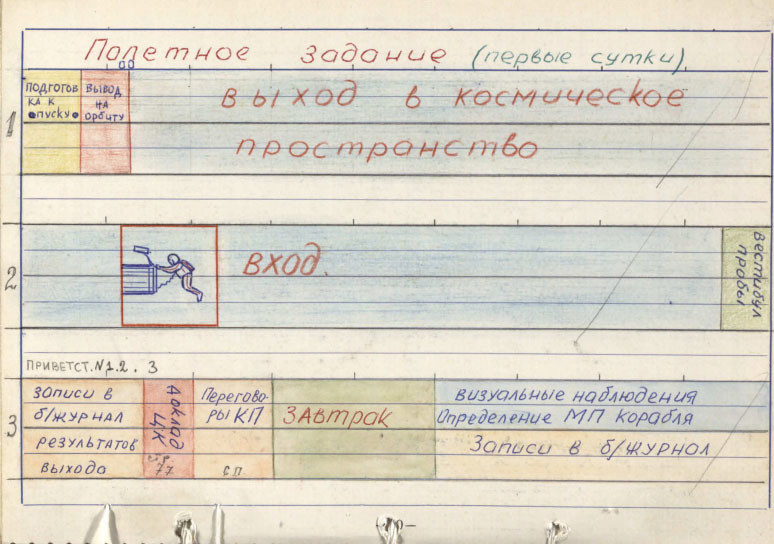 Полетное задание (первые сутки)
00
1
ПОДГОТОВ
КА К
ПУСКУ
ВЫВОД
НА
орбиту
ВЫХОД в космическое
пространство
2
ВХОД.
вестибул
пробы
ПРИВЕТСТ. N1.2. 3
3
записи в
б/журнал
результатов
выхода
доклад
ЦК
77
Перегово-
ры КП
СП
ЗАВтрак
визуальные наблюдения
Определение МП корабля
Записи в б/журнал